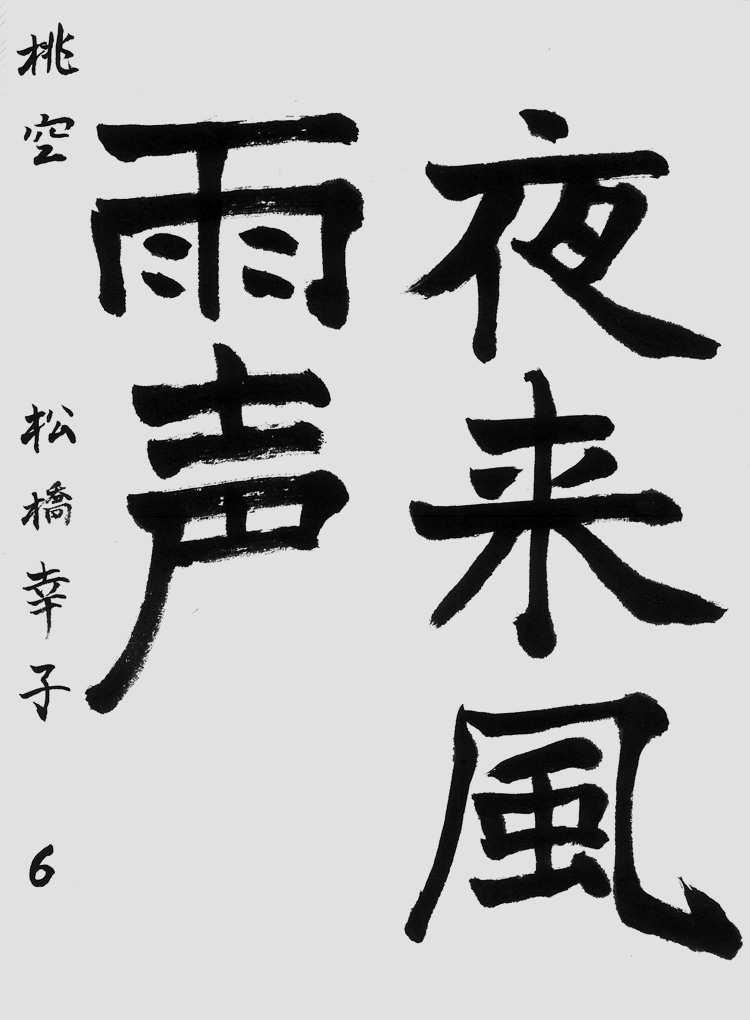 夜来風
雨声
桃空 松橋幸子 6